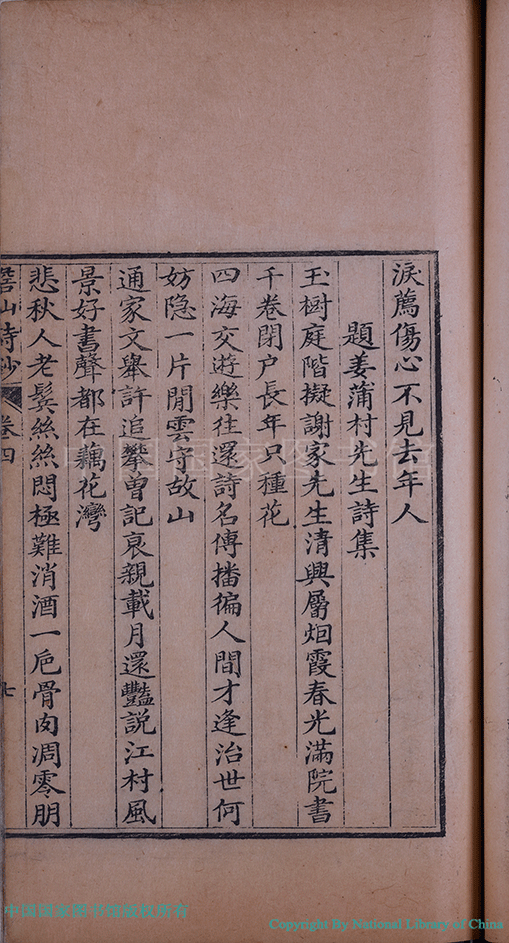 淚薦傷心不見去年人
題姜蒲村先生詩集
玉樹庭階擬謝家先生清興屬烟霞春光滿院書
千卷閉户長年只種花
四海交遊樂往還詩名傳播徧人間才逢治世何
妨隐一片閒雲守故山
通家文舉許追攀曾記哀親載月還豔説江村風
景好書聲都在藕花灣
悲秋人老鬂絲絲悶極難消酒一巵骨肉凋零朋
山詩鈔
卷四
七
中国国家图书馆
中国国家图书馆版权所有
Copyright By National Library of China